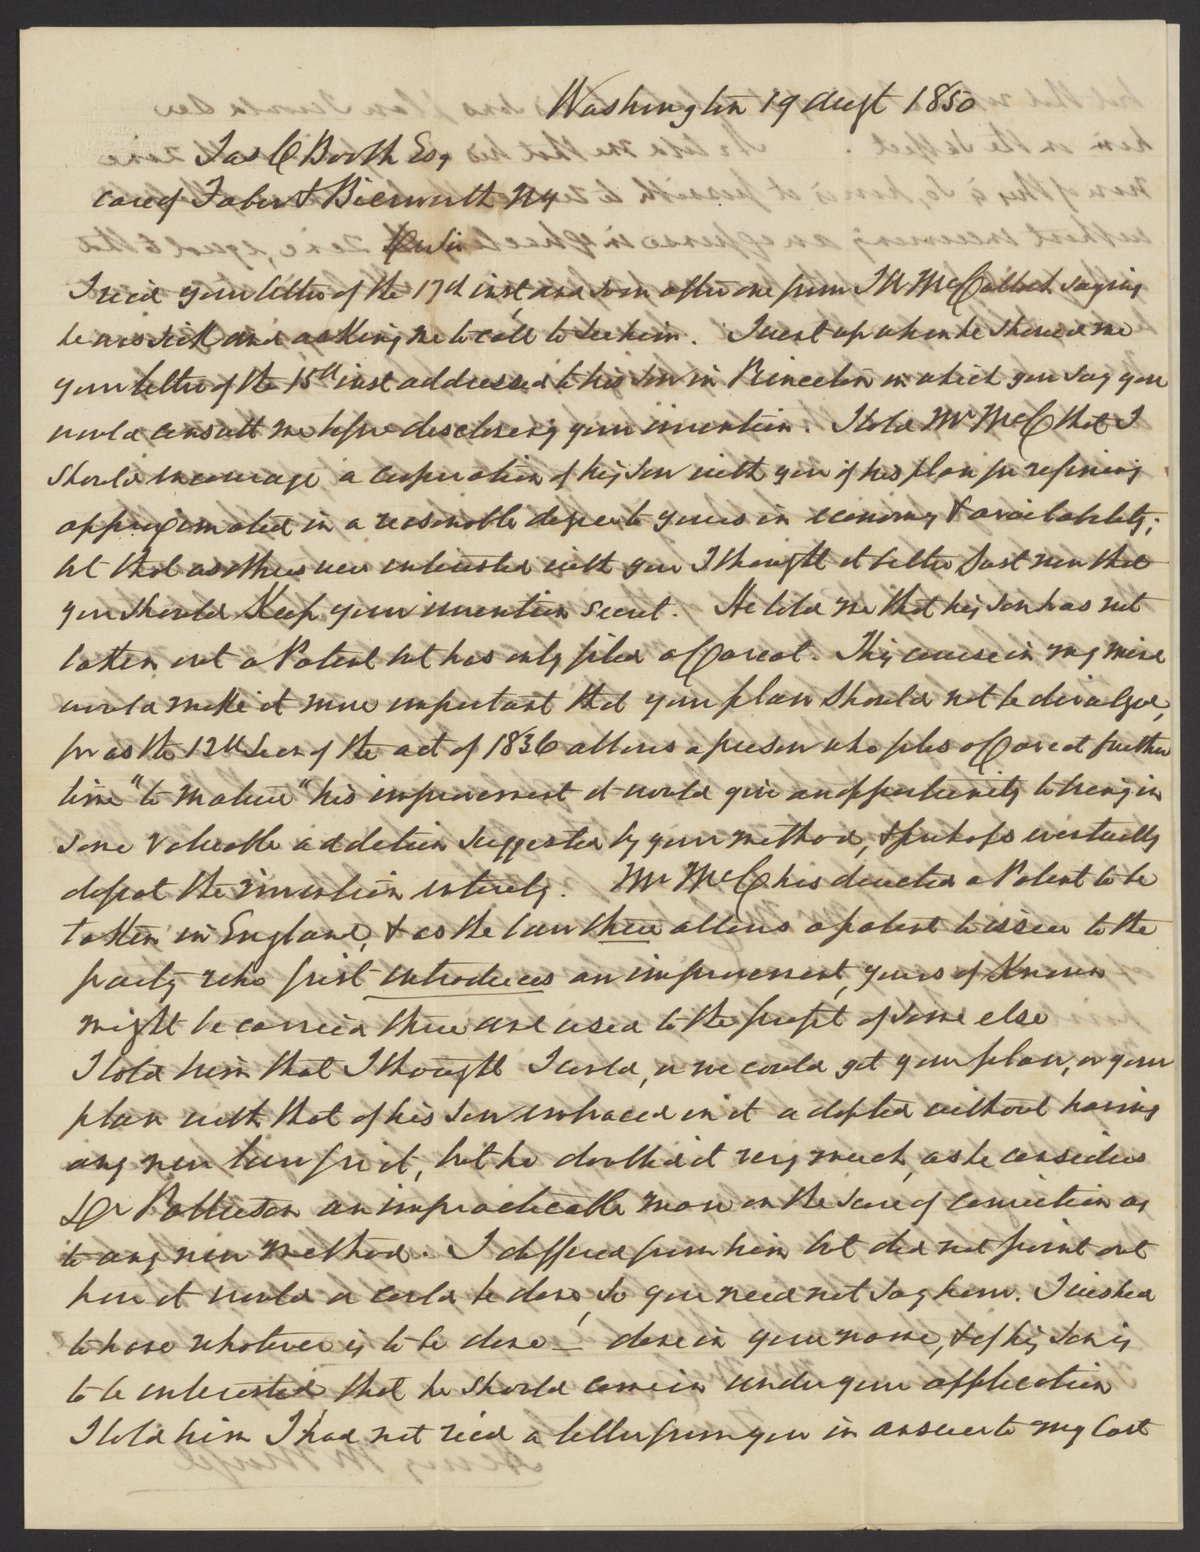 Washington 19 Augt 1850
Jas C Booth Esq
care of Faber & Bierwirth NY
Dr Sir
I recd your letter of the 17th inst and soon after one from J H McCulloch saying
he was sick and asking me to call to see him. I went up when he showed me
your letter of the 15th inst addressed to his son in Princeton in which you say you
would consult me before disclosing your invention. I told Mr McC that I
should encourage a cooperation of his son with you if his plan for refining
approximated in a reasonable degree to yours in economy & availability;
but that as others were interested with you I thought it better just now that
you should keep your invention secret. He told me that his son has not
taken out a Patent but has only filed a Caveat. This course in my mind
would make it more important that your plan should not be divulged,
for as the 12th Sec of the act of 1836 allows a person who files a Caveat further
time "to mature" his improvement it would give an opportunity to bring in
some valuable addition suggested by your method, & perhaps eventually
defeat the invention entirely. Mr McC has directed a Patent to be
taken in England, & as the law there allows a patent to issue to the
party who first introduces an improvement, yours if known
might be carried there and used to the profit of some else
I told him that I thought I could, or we could get your plan, or your
plan with that of his son embraced in it adopted without having
any new law for it, but he doubted it very much, as he considers
Dr Patterson an impracticable man on the score of conviction as
to any new method. I differed from him but did not point out
how it would or could be done, so you need not say how. I wished
to have whatever is to be done – done in your name, & if his son is
to be interested that he should come in under your application
I told him I had not recd a letter from you in answer to my last